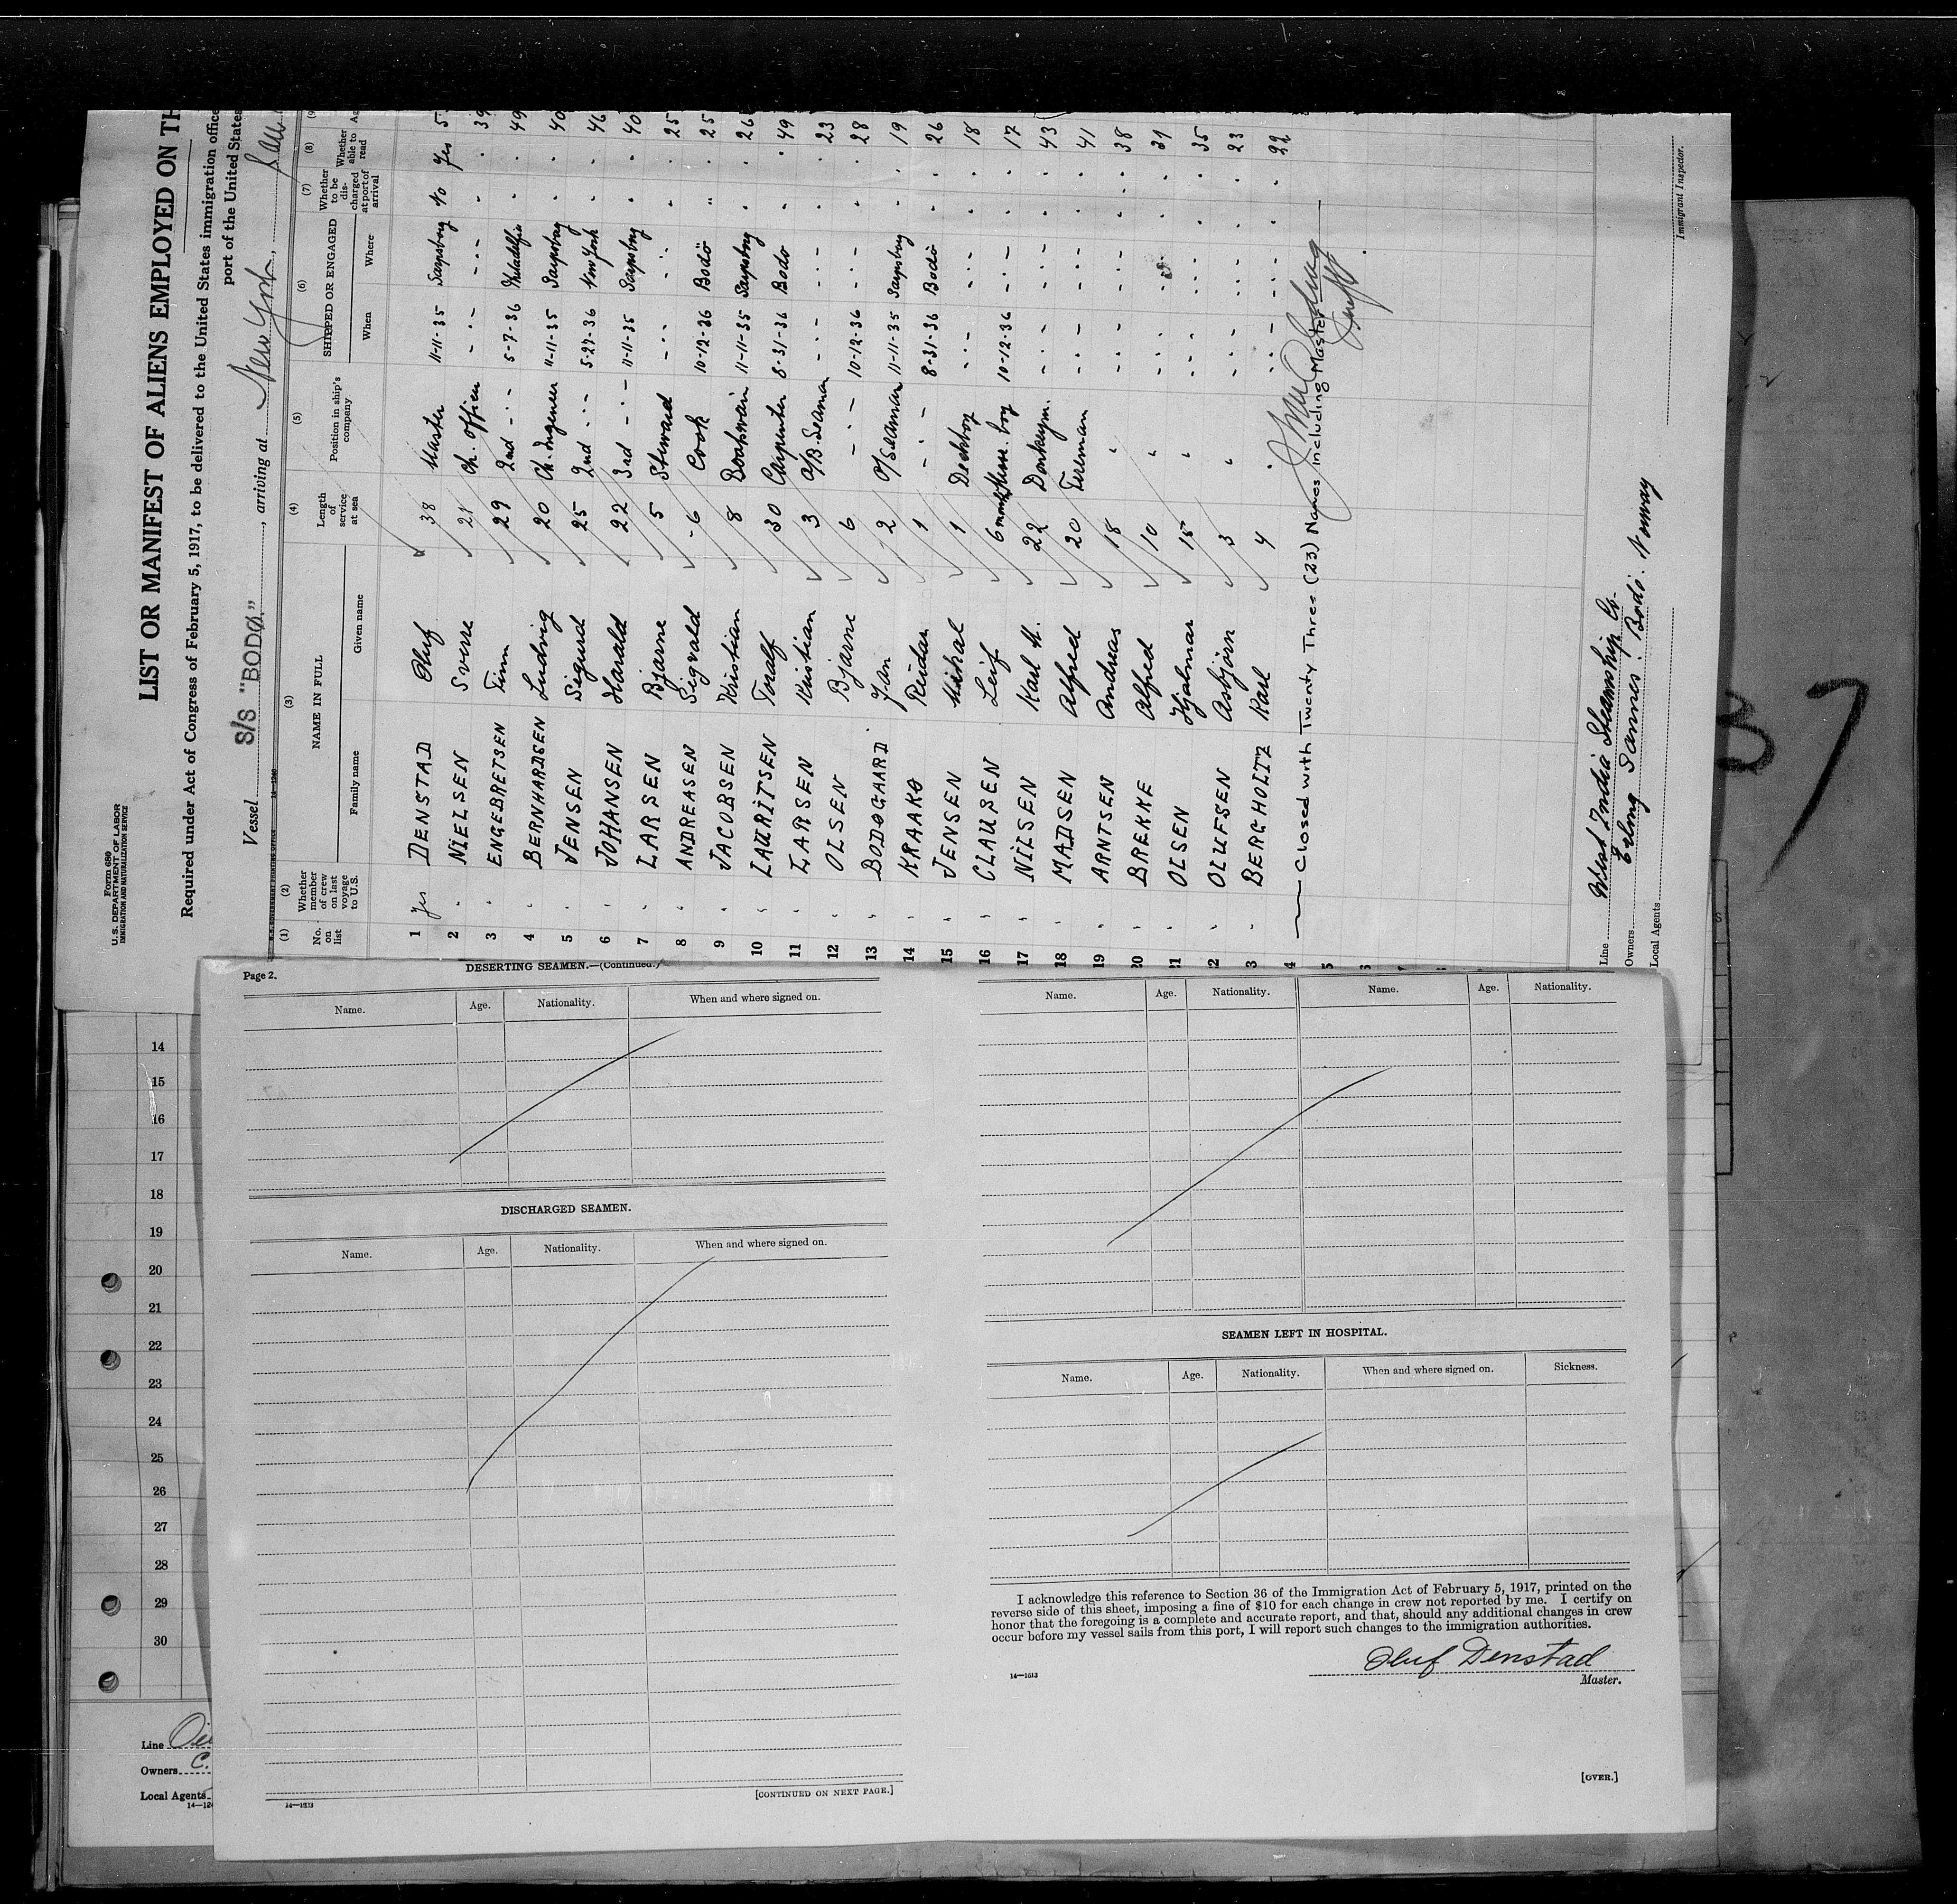 Form 680
U. S. DEPARTMENT OF LABOR
IMMIGRATION AND NATURALIZATION SERVICE
LIST OR MANIFEST OF ALIENS EMPLOYED ON TH
Required under Act of Congress of February 5, 1917, to be delivered to the United States immigration office
port of the United States
Vessel S/S "BODØ.", arriving at New York,
(1) (2) (3) (4) (5) (6) (7) (8)
No. on list Whether member of crew on last voyage to U.S. NAME IN FULL Family name Given name Length of service at sea Position in ship's company SHIPPED OR ENGAGED When Where Whether to be discharged at port of arrival Whether able to read
1 Yes DENSTAD Oluf 38 Master 11-11-35 Sarpsborg No Yes 5
2 " NIELSEN Sverre Ch. officer - " - - " - " " 39
3 " ENGEBRETSEN Finn 29 2nd - " - 5-7-36 Philadelfia " " 49
4 " BERNHARDSEN Ludvig 20 Ch. Ingeneer 11-11-35 Sarpsborg " " 40
5 " JENSEN Sigurd 25 2nd - " - 5-27-36 New York " " 46
6 " JOHANSEN Harald 22 3rd - " - 11-11-35 Sarpsborg " " 40
7 " LARSEN Bjarne 5 Steward - " - - " - " " 25
8 " ANDREASEN Sigvald 6 Cook 10-12-36 Bodö " " 25
9 " JACOBSEN Kristian 8 Boatswain 11-11-35 Sarpsborg " " 26
10 " LAURITSEN Toralf 30 Carpenter 8-31-36 Bodö " " 49
11 " LARSEN Kristian 3 A/B. Seaman - " - - " - " " 23
12 " OLSEN Bjarne 6 - " - 10-12-36 - " - " " 28
13 " BODØGAARD Jan 2 O/Seaman 11-11-35 Sarpsborg " " 19
14 " KRAAKØ Reidar 1 - " - 8-31-36 Bodö " " 26
15 " JENSEN Mikal 1 Deckboy - " - - " - " " 18
16 " CLAUSEN Leif 6 Mess. boy 10-12-36 - " - " " 17
17 " NILSEN Karl M. 22 Donkeym. - " - - " - " " 43
18 " MADSEN Alfred 20 Fireman - " - - " - " " 41
19 " ARNTSEN Andreas 18 " - " - - " - " " 38
20 " BREKKE Alfred 10 " - " - - " - " " 31
21 " OLSEN Hjalmar 15 " - " - - " - " " 35
2 " OLUFSEN Asbjörn 3 " - " - - " - " " 23
3 " BERGHOLTZ Karl 4 " - " - - " - " " 22
4 Closed with Twenty Three (23) Names including Master
5
Line West India Steamship Co.
Owners Erling Sannes. Bodö. Norway
Local Agents
Immigrant Inspector.
37
Page 2.
DESERTING SEAMEN.—(Continued.)
Name. Age. Nationality. When and where signed on.
DISCHARGED SEAMEN.
Name. Age. Nationality. When and where signed on.
14—1513
[CONTINUED ON NEXT PAGE.]
Name. Age. Nationality. Name. Age. Nationality.
SEAMEN LEFT IN HOSPITAL.
Name. Age. Nationality. When and where signed on. Sickness.
I acknowledge this reference to Section 36 of the Immigration Act of February 5, 1917, printed on the
reverse side of this sheet, imposing a fine of $10 for each change in crew not reported by me. I certify on
honor that the foregoing is a complete and accurate report, and that, should any additional changes in crew
occur before my vessel sails from this port, I will report such changes to the immigration authorities.
Oluf Denstad
14—1513
Master.
[OVER.]
14
15
16
17
18
19
20
21
22
23
24
25
26
27
28
29
30
Line
Owners C.
Local Agents